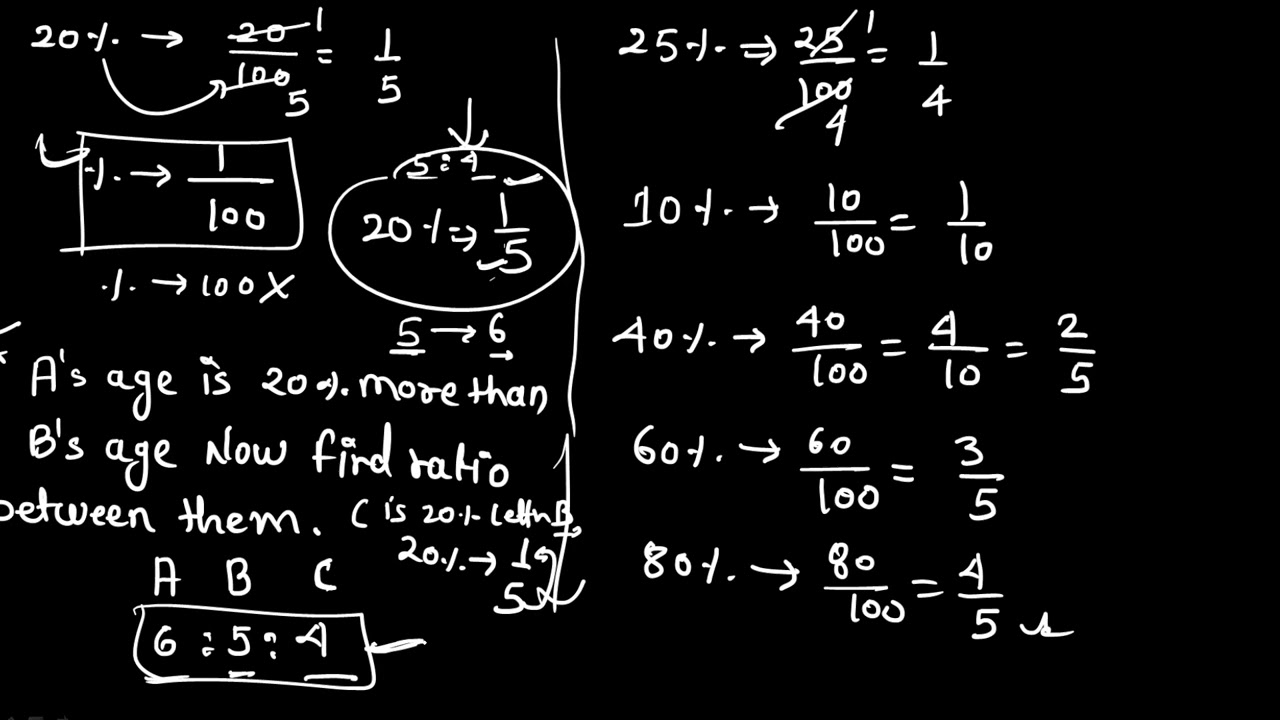 20% → 20/100 = 1/5
1
5
% → 1/100
5:4
20% ⇒ 1/5
% → 100 X
5 → 6
A's age is 20% more than
B's age Now find ratio
between them. C is 20% B
20% → 1
5
A B C
6 : 5 : 4
25% ⇒ 25/100 = 1/4
1
4
10% → 10/100 = 1/10
40% → 40/100 = 4/10 = 2/5
60% → 60/100 = 3/5
80% → 80/100 = 4/5